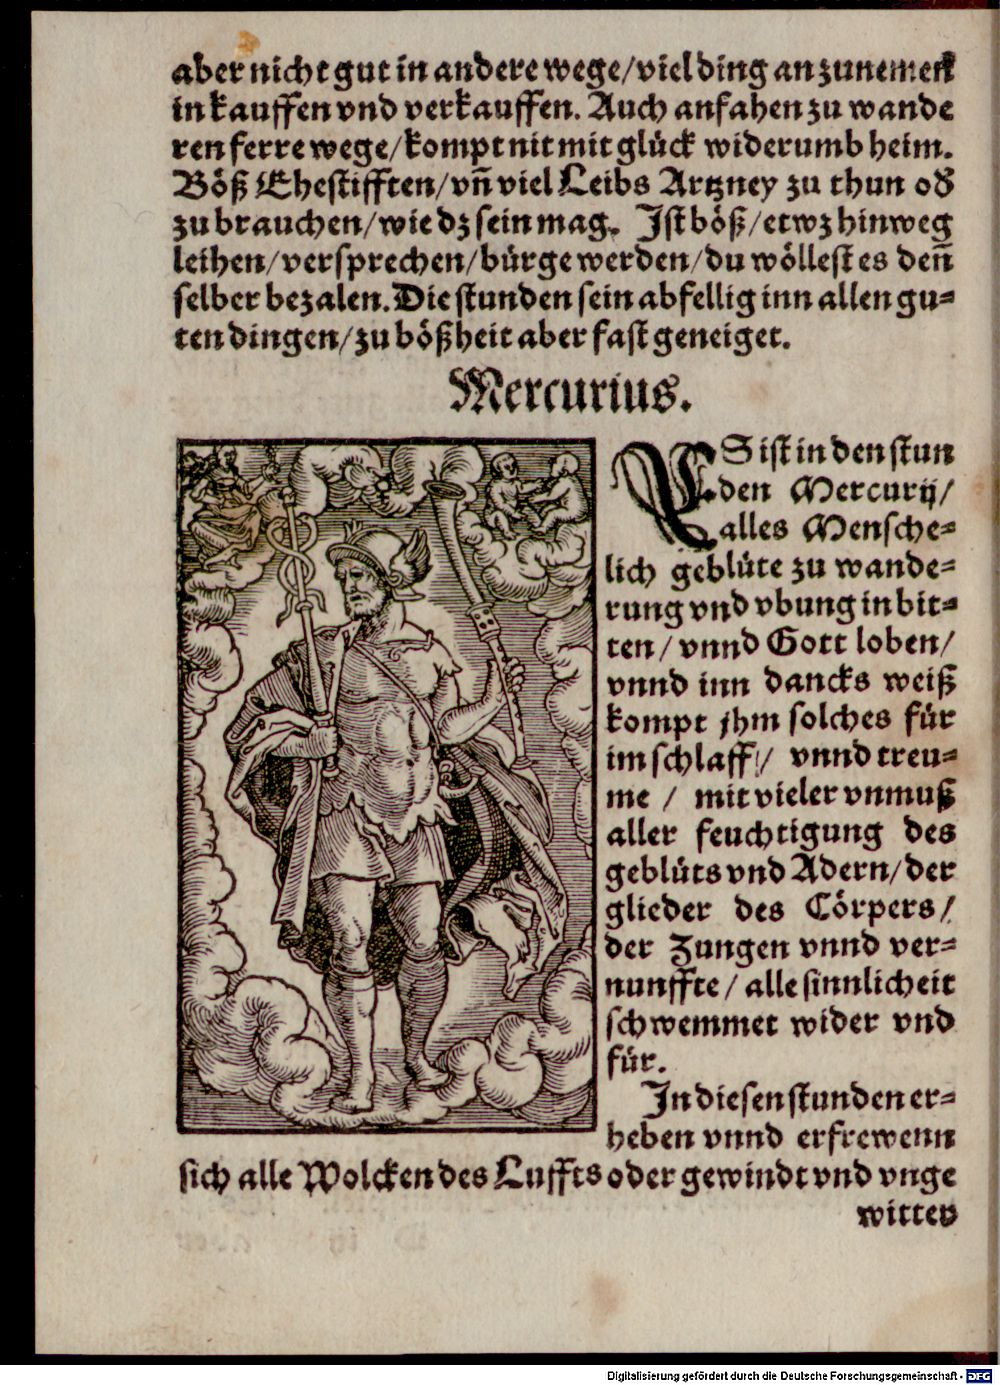 aber nicht gut in andere wege/viel ding an zunemen
in kauffen vnd verkauffen. Auch anfahen zu wande
ren ferre wege/kompt nit mit glück widerumb heim.
Böß Ehestifften/vñ viel Leibs Artzney zu thun od
zu brauchen/wie dz sein mag. Ist böß/etwz hinweg
leihen/versprechen/bürge werden/du wöllest es deñ
selber bezalen. Die stunden sein abfellig inn allen gu⸗
ten dingen/zu bößheit aber fast geneiget.
Mercurius.
ES ist in den stun
den Mercurij/
alles Mensche⸗
lich geblüte zu wande⸗
rung vnd vbung in bit⸗
ten/ vnnd Gott loben/
vnnd inn dancks weiß
kompt jhm solches für
im schlaff/ vnnd treu⸗
me / mit vieler vnmuß
aller feuchtigung des
geblüts vnd Adern/der
glieder des Cörpers/
der Zungen vnnd ver⸗
nunffte/ alle sinnlicheit
schwemmet wider vnd
für.
In diesen stunden er⸗
heben vnnd erfrewenn
sich alle Wolcken des Luffts oder gewindt vnd vnge
witter
Digitalisierung gefördert durch die Deutsche Forschungsgemeinschaft - DFG